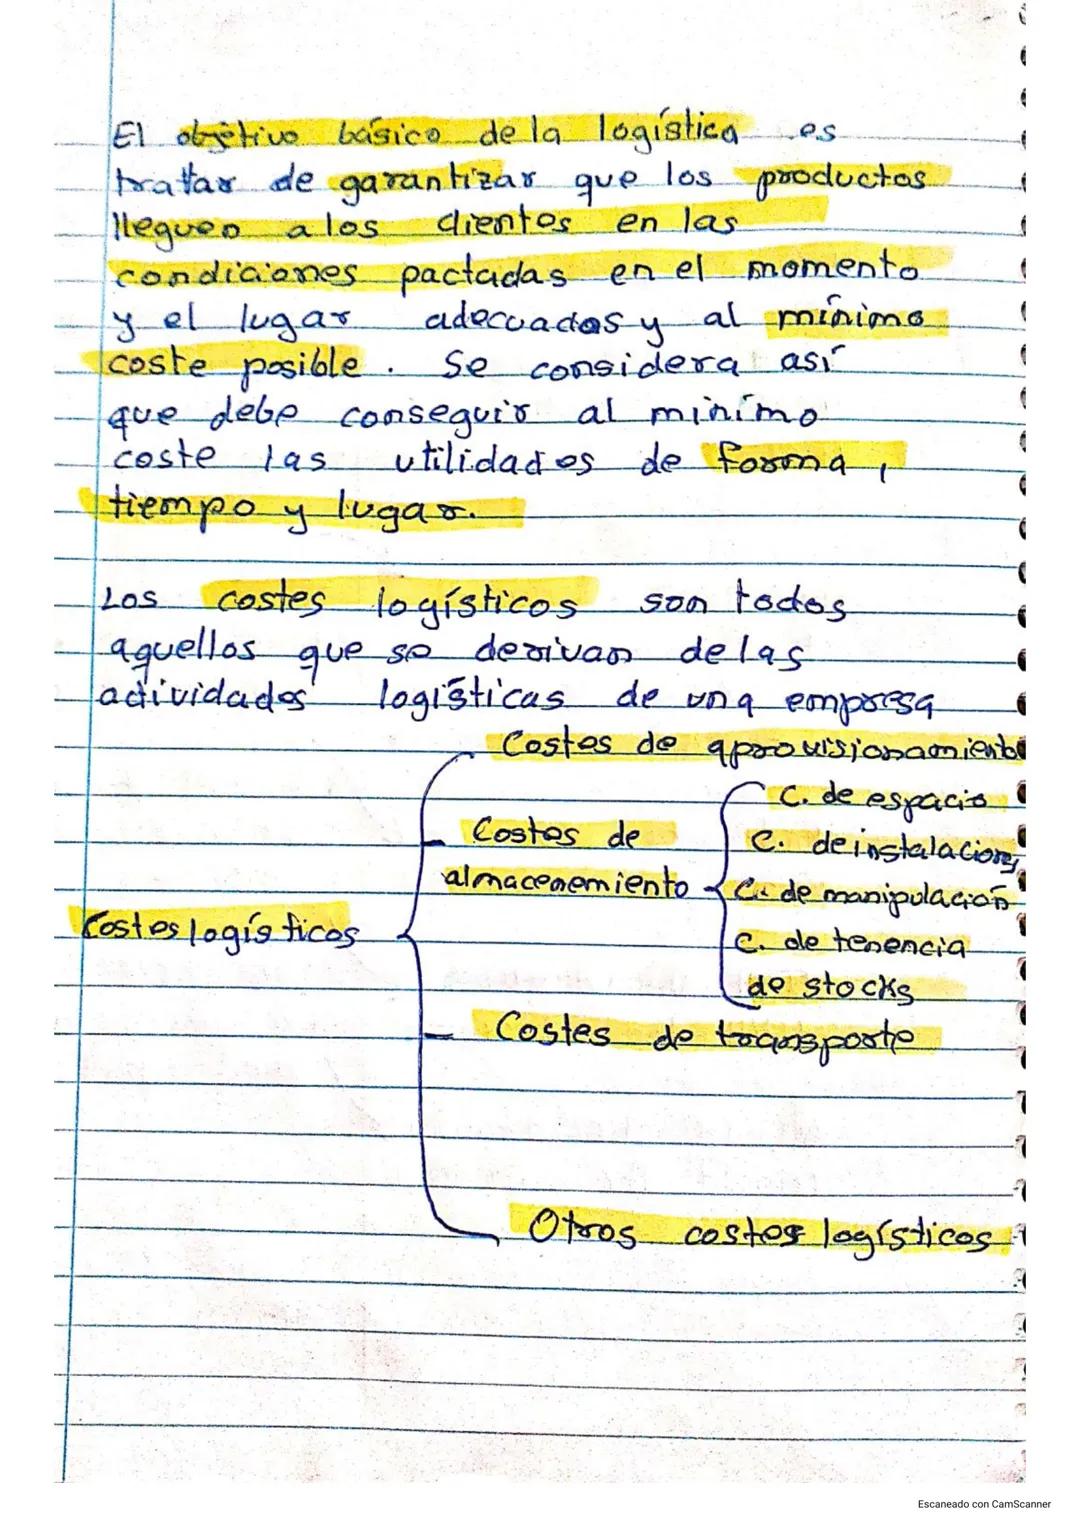 El objetivo básico de la logística es
tratar de garantizar que los productos
lleguen a los clientes en las
condiciones pactadas en el momento
y el lugar adecuados y al mínimo
coste posible. Se considera así
que debe conseguir al minímo
coste las utilidades de forma,
tiempo y lugar.
Los costes logísticos son todos
aquellos que se derivan de las
actividades logísticas de una empresa
Costes de aprovisionamiento
C. de espacio
Costes de
C. de instalaciones
almacenemiento
C. de manipulación
Costes logísticos
C. de tenencia
de stocks
Costes de transporte
Otros costes logísticos
Escaneado con CamScanner